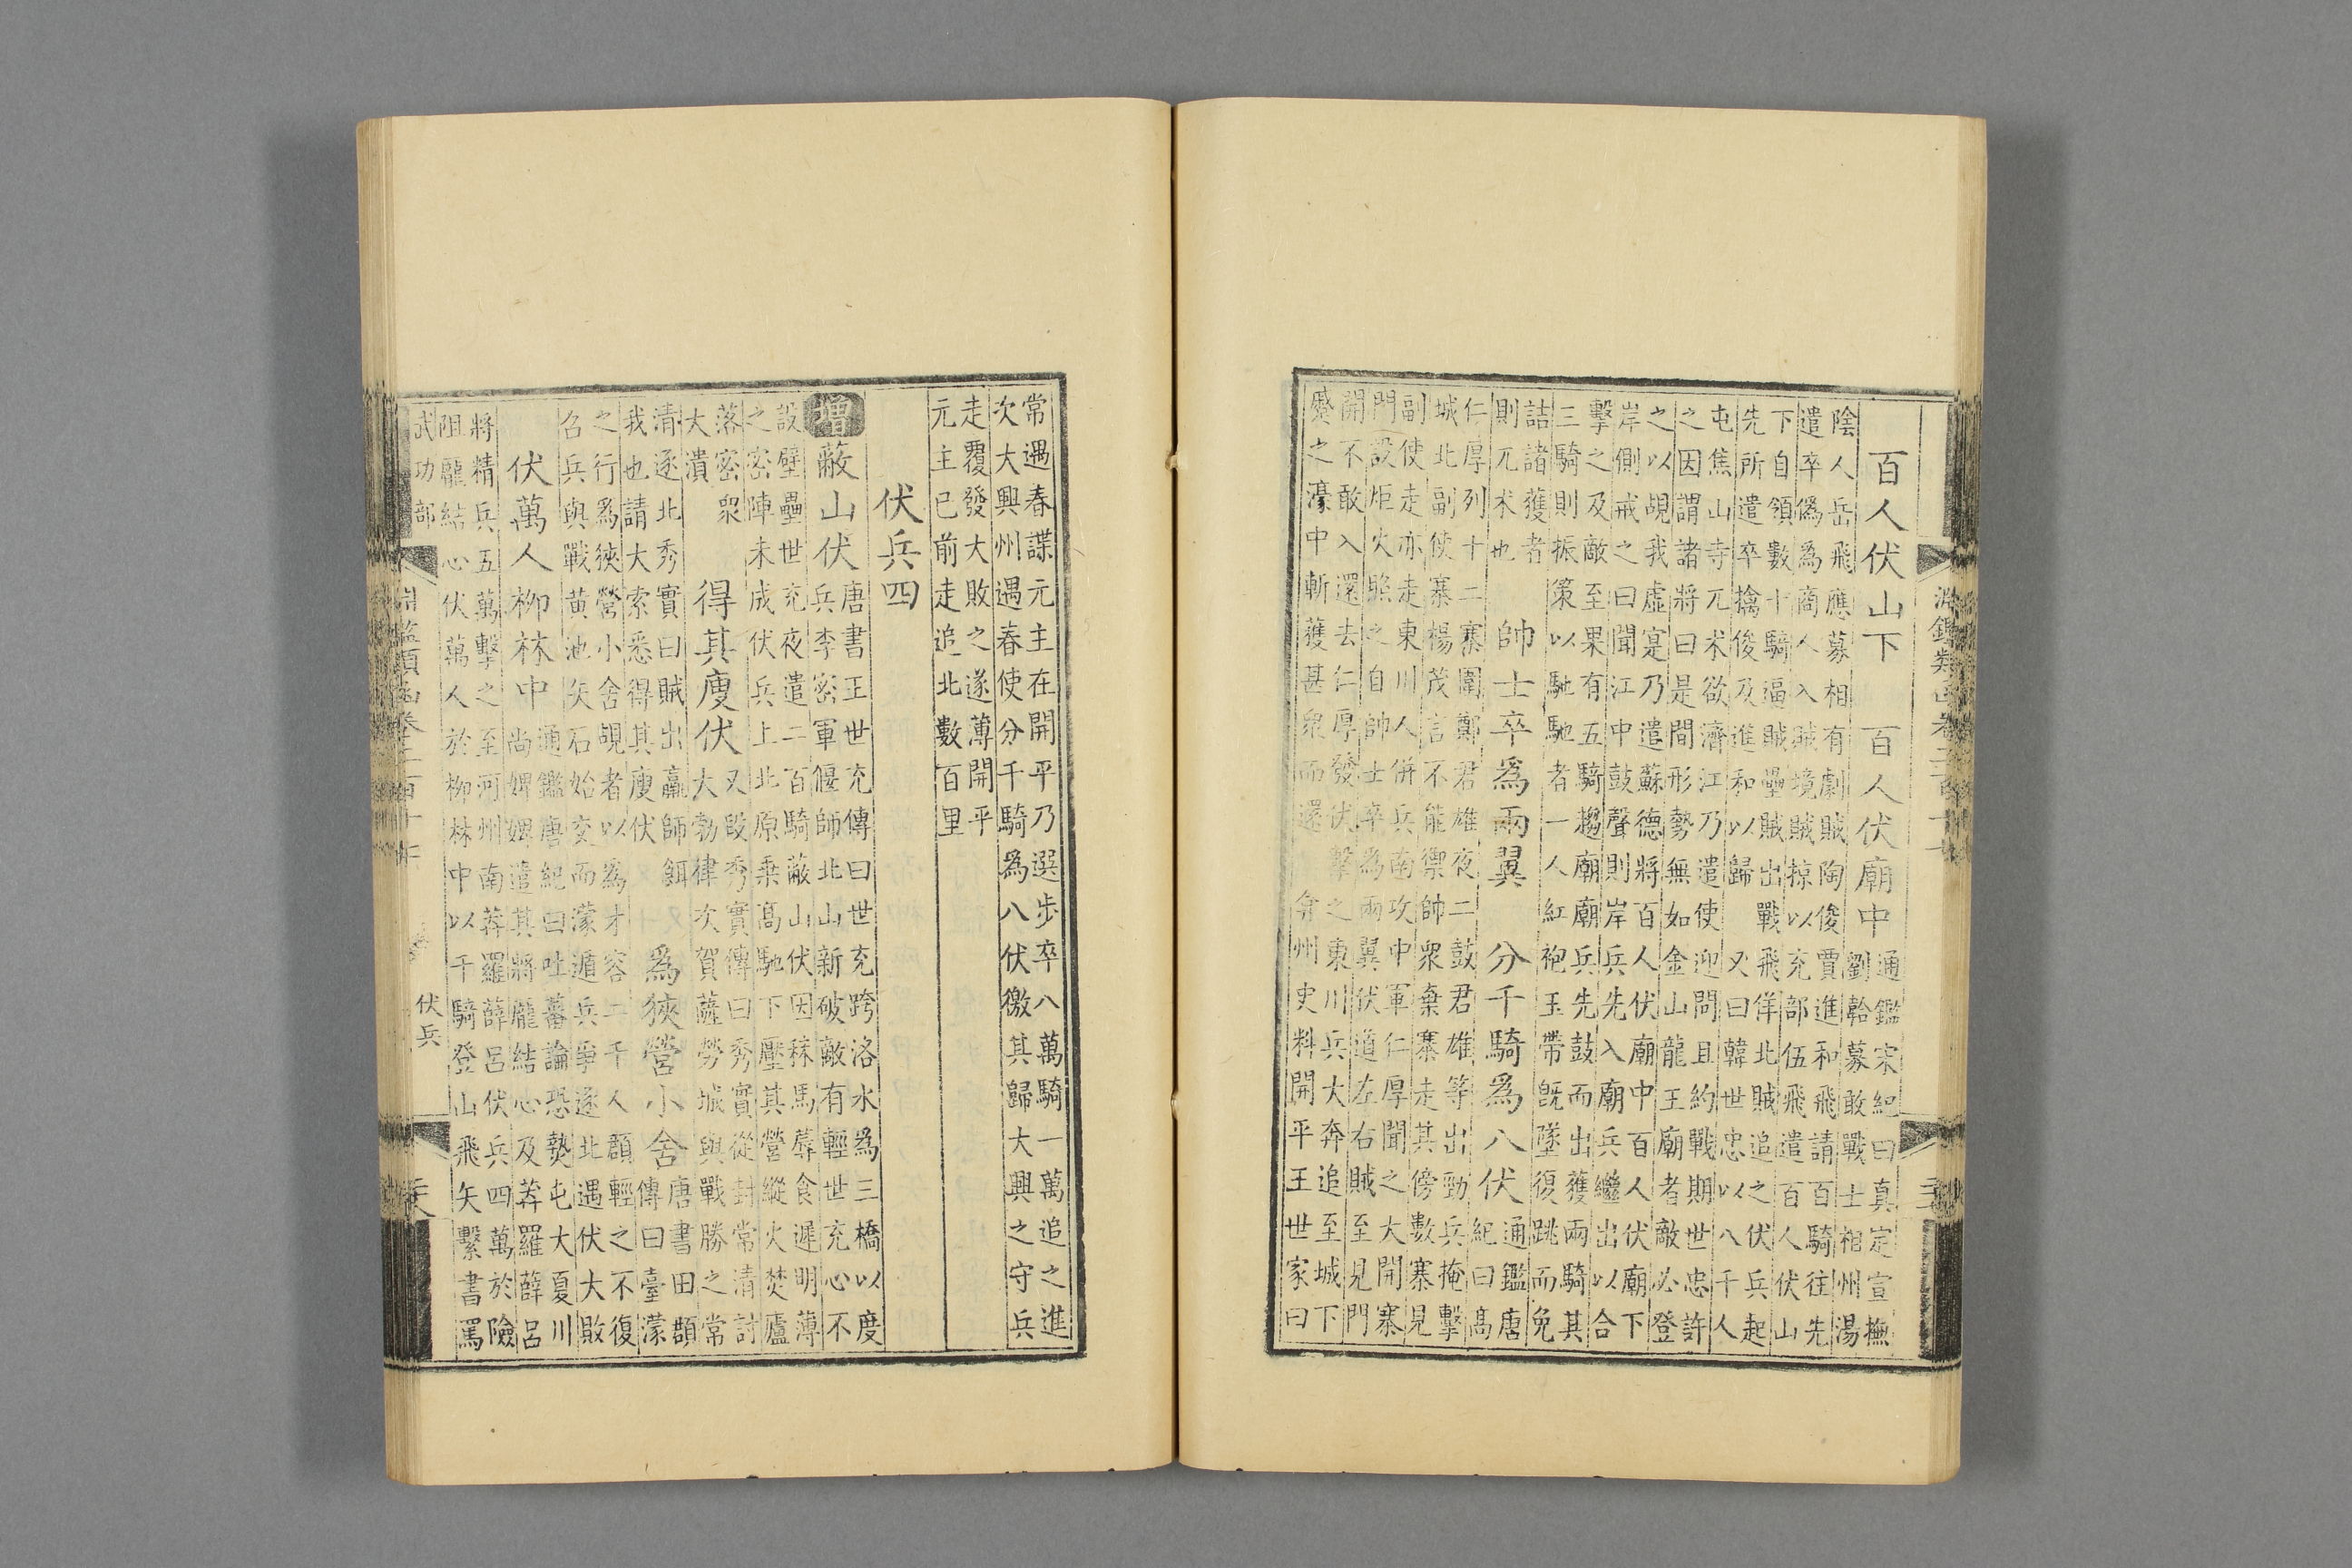 淵鑑類函卷二百十七
百人伏山下　百人伏廟中　通鑑宋紀曰真定宣撫
劉韐募敢戰士相州湯
陰人岳飛應募相有劇賊陶俊賈進和飛請百騎往先
遣卒僞爲商人入賊境賊掠以充部伍飛遣百人伏山
下自領數十騎逼賊壘賊出戰飛佯北賊追之伏兵起
先所遣卒擒俊及進和以歸　又曰韓世忠以八千人
屯焦山寺兀朮欲濟江乃遣使迎問且約戰期世忠許
之因謂諸將曰是間形勢無如金山龍王廟者敵必登
之以覘我虛寔乃遣蘇德將百人伏廟中百人伏廟下
岸側戒之曰聞江中鼓聲則岸兵先入廟兵繼出以合
擊之及敵至果有五騎趨廟廟兵先鼓而出獲兩騎其
三騎則振策以馳馳者一人紅袍玉帶既墜復跳而免
詰諸獲者
則兀朮也
帥士卒爲兩翼　分千騎爲八伏　通鑑唐
紀曰高
仁厚列十二寨圍鄭君雄夜二鼓君雄等出勁兵掩擊
城北副使寨楊茂言不能禦帥衆棄寨走其傍數寨見
副使走亦走東川人併兵南攻中軍仁厚聞之大開寨
門設炬火照之自帥士卒為兩翼伏道左右賊至見門
開不敢入還去仁厚發伏擊之東川兵大奔追至城下
蹙之濠中斬獲甚衆而還　弇州史料開平王世家曰
常遇春諜元主在開平乃選步卒八萬騎一萬追之進
次大興州遇春使分千騎爲八伏徼其歸大興之守兵
走覆發大敗之遂薄開平
元主已前走追北數百里
伏兵四
增　蔽山伏　唐書王世充傳曰世充跨洛水爲三橋以度
兵李密軍偃師北山新破敵有輕世充心不
設壁壘世充夜遣二百騎蔽山伏因秣馬蓐食遲明薄
之密陣未成伏兵上北原乘髙馳下壓其營縱火焚廬
落密衆
大潰
得其廋伏　又段秀實傳曰秀實從封常清討
大勃律次賀薩勞城與戰勝之常
清逐北秀實曰賊出羸師餌
我也請大索悉得其廋伏
爲狹營小舍　唐書田頵
傳曰臺濛
之行爲狹營小舍覘者以為才容二千人頵輕之不復
召兵與戰黄池矢石始交而濛遁兵爭逐北遇伏大敗
伏萬人柳林中　通鑑唐紀曰吐蕃論恐熱屯大夏川
尚婢婢遣其將龎結心及莽羅薛呂
將精兵五萬擊之至河州南莽羅薛呂伏兵四萬於險
阻龎結心伏萬人於柳林中以千騎登山飛矢繫書罵
武功部　伏兵